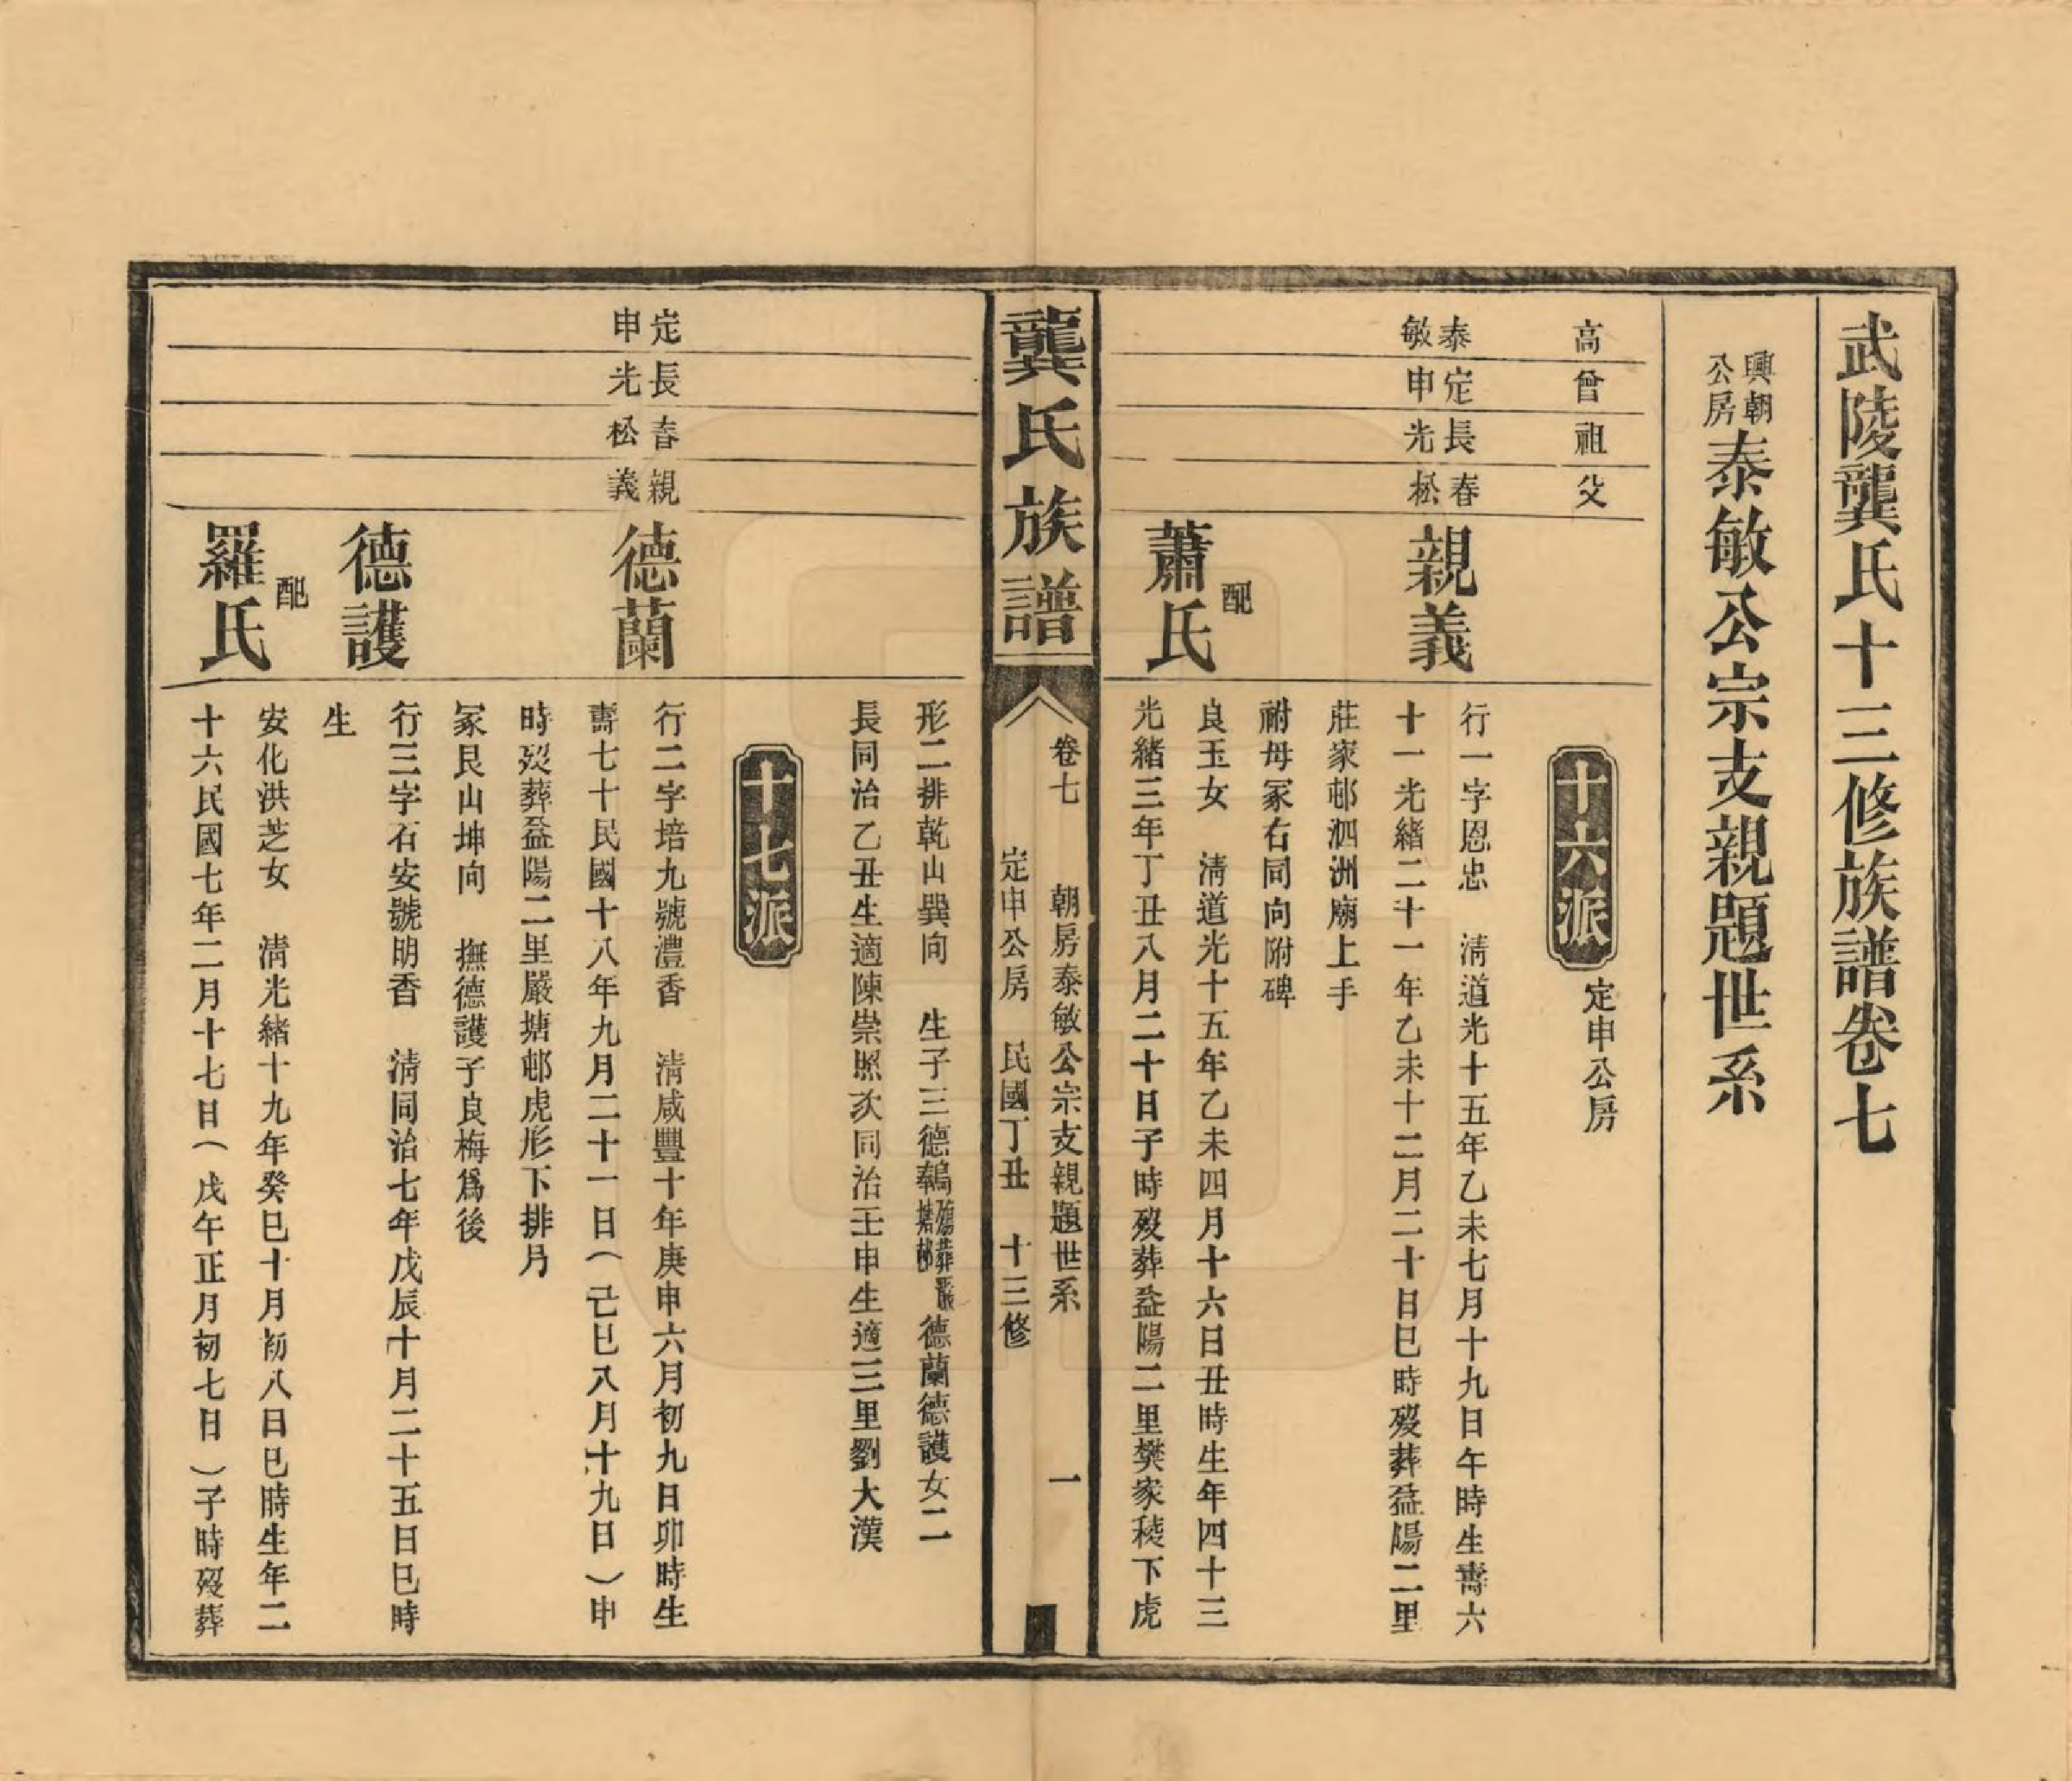 武陵龔氏十三修族譜卷七
興朝公房泰敏公宗支親題世系
高 曾 祖 父
十六派 定申公房
泰敏 定申 長光 春松
親義
行一字恩忠 淸道光十五年乙未七月十九日午時生壽六
十一光緒二十一年乙未十二月二十日巳時歿葬益陽二里
莊家邨泗洲廟上手
祔母冢右同向附碑
配蕭氏
良玉女 淸道光十五年乙未四月十六日丑時生年四十三
光緒三年丁丑八月二十日子時歿葬益陽二里樊家稜下虎
龔氏族譜
卷七 朝房泰敏公宗支親題世系 一
定申公房 民國丁丑 十三修
形二排乾山巽向 生子三德鶤殤葬嚴塘邨德蘭德護女二
長同治乙丑生適陳崇照次同治壬申生適三里劉大漢
十七派
定申 長光 春松 親義
德蘭
行二字培九號澧香 淸咸豐十年庚申六月初九日卯時生
壽七十民國十八年九月二十一日（己巳八月十九日）申
時歿葬益陽二里嚴塘邨虎形下排月
冢艮山坤向 撫德護子良梅爲後
德護
行三字石安號明香 淸同治七年戊辰十月二十五日巳時
生
配羅氏
安化洪芝女 淸光緒十九年癸巳十月初八日巳時生年二
十六民國七年二月十七日（戊午正月初七日）子時歿葬